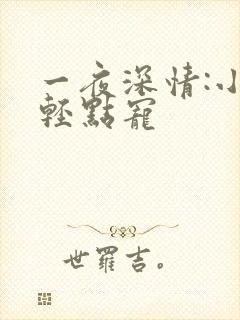 一夜深情:小
輕點寵
世羅吉。